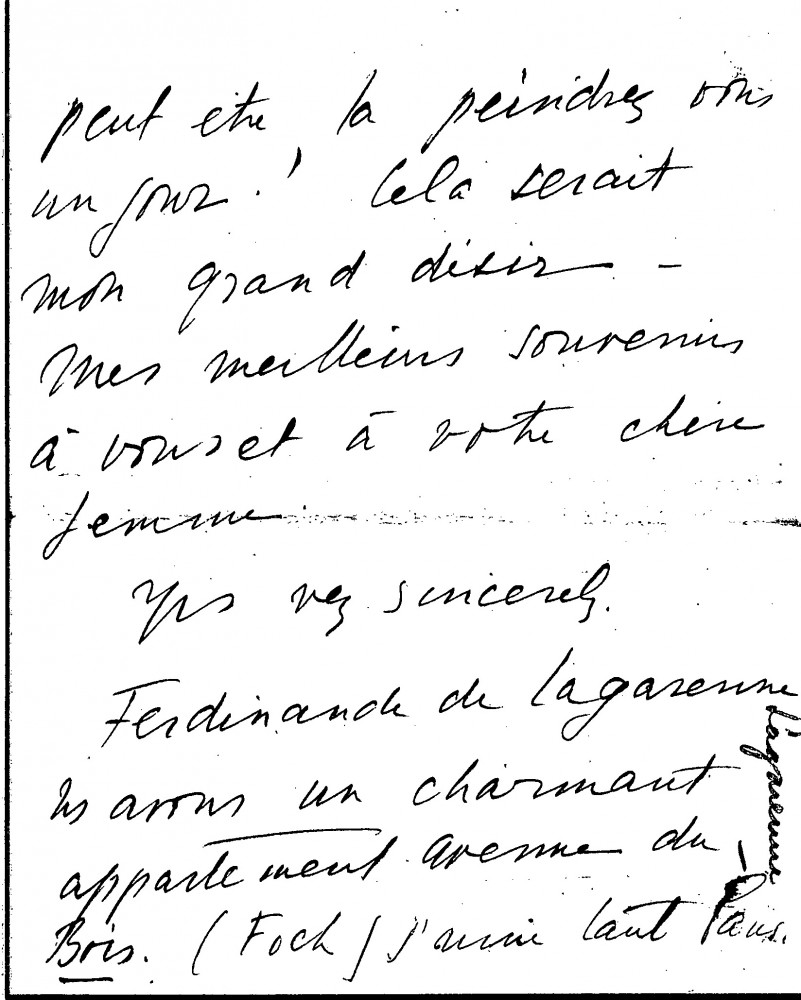 peut etre, la peindrez vous
un jour ! Cela serait
mon grand désir –
Mes meilleurs souvenirs
à vous et à votre chère
femme
Yrs very sincerely.
Ferdinande de Lagarenne
Ns avons un charmant
appartement avenue du
Bois. (Foch) j'aime tant Paris.
Lagarenne